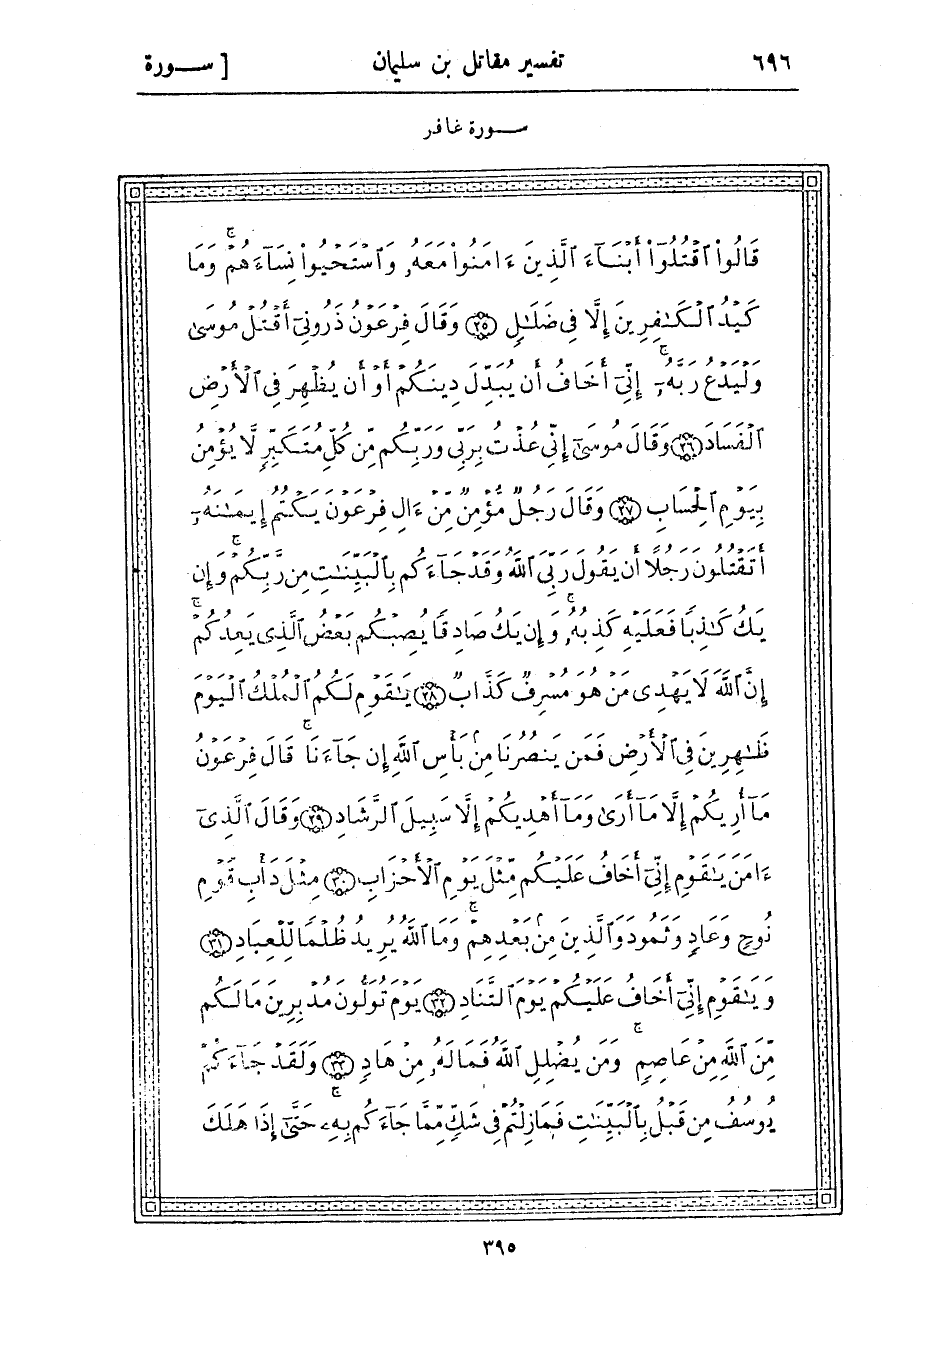 ٦٩٦ تفسير مقاتل بن سليمان [ ســورة
ســورة غافر
قَالُوا۟ ٱقْتُلُوٓا۟ أَبْنَآءَ ٱلَّذِينَ ءَامَنُوا۟ مَعَهُۥ وَٱسْتَحْيُوا۟ نِسَآءَهُمْ ۚ وَمَا
كَيْدُ ٱلْكَٰفِرِينَ إِلَّا فِى ضَلَٰلٍ ٢٥ وَقَالَ فِرْعَوْنُ ذَرُونِىٓ أَقْتُلْ مُوسَىٰ
وَلْيَدْعُ رَبَّهُۥٓ ۖ إِنِّىٓ أَخَافُ أَن يُبَدِّلَ دِينَكُمْ أَوْ أَن يُظْهِرَ فِى ٱلْأَرْضِ
ٱلْفَسَادَ ٢٦ وَقَالَ مُوسَىٰٓ إِنِّى عُذْتُ بِرَبِّى وَرَبِّكُم مِّن كُلِّ مُتَكَبِّرٍ لَّا يُؤْمِنُ
بِيَوْمِ ٱلْحِسَابِ ٢٧ وَقَالَ رَجُلٌ مُّؤْمِنٌ مِّنْ ءَالِ فِرْعَوْنَ يَكْتُمُ إِيمَٰنَهُۥٓ
أَتَقْتُلُونَ رَجُلًا أَن يَقُولَ رَبِّىَ ٱللَّهُ وَقَدْ جَآءَكُم بِٱلْبَيِّنَٰتِ مِن رَّبِّكُمْ ۚ وَإِن
يَكُ كَٰذِبًا فَعَلَيْهِ كَذِبُهُۥ ۚ وَإِن يَكُ صَادِقًا يُصِبْكُم بَعْضُ ٱلَّذِى يَعِدُكُمْ ۚ
إِنَّ ٱللَّهَ لَا يَهْدِى مَنْ هُوَ مُسْرِفٌ كَذَّابٌ ٢٨ يَٰقَوْمِ لَكُمُ ٱلْمُلْكُ ٱلْيَوْمَ
ظَٰهِرِينَ فِى ٱلْأَرْضِ فَمَن يَنصُرُنَا مِنۢ بَأْسِ ٱللَّهِ إِن جَآءَنَا ۚ قَالَ فِرْعَوْنُ
مَآ أُرِيكُمْ إِلَّا مَآ أَرَىٰ وَمَآ أَهْدِيكُمْ إِلَّا سَبِيلَ ٱلرَّشَادِ ٢٩ وَقَالَ ٱلَّذِىٓ
ءَامَنَ يَٰقَوْمِ إِنِّىٓ أَخَافُ عَلَيْكُم مِّثْلَ يَوْمِ ٱلْأَحْزَابِ ٣٠ مِثْلَ دَأْبِ قَوْمِ
نُوحٍ وَعَادٍ وَثَمُودَ وَٱلَّذِينَ مِنۢ بَعْدِهِمْ ۚ وَمَا ٱللَّهُ يُرِيدُ ظُلْمًا لِّلْعِبَادِ ٣١
وَيَٰقَوْمِ إِنِّىٓ أَخَافُ عَلَيْكُمْ يَوْمَ ٱلتَّنَادِ ٣٢ يَوْمَ تُوَلُّونَ مُدْبِرِينَ مَا لَكُم
مِّنَ ٱللَّهِ مِنْ عَاصِمٍ ۗ وَمَن يُضْلِلِ ٱللَّهُ فَمَا لَهُۥ مِنْ هَادٍ ٣٣ وَلَقَدْ جَآءَكُمْ
يُوسُفُ مِن قَبْلُ بِٱلْبَيِّنَٰتِ فَمَا زِلْتُمْ فِى شَكٍّ مِّمَّا جَآءَكُم بِهِۦ ۖ حَتَّىٰٓ إِذَا هَلَكَ
٣٩٥